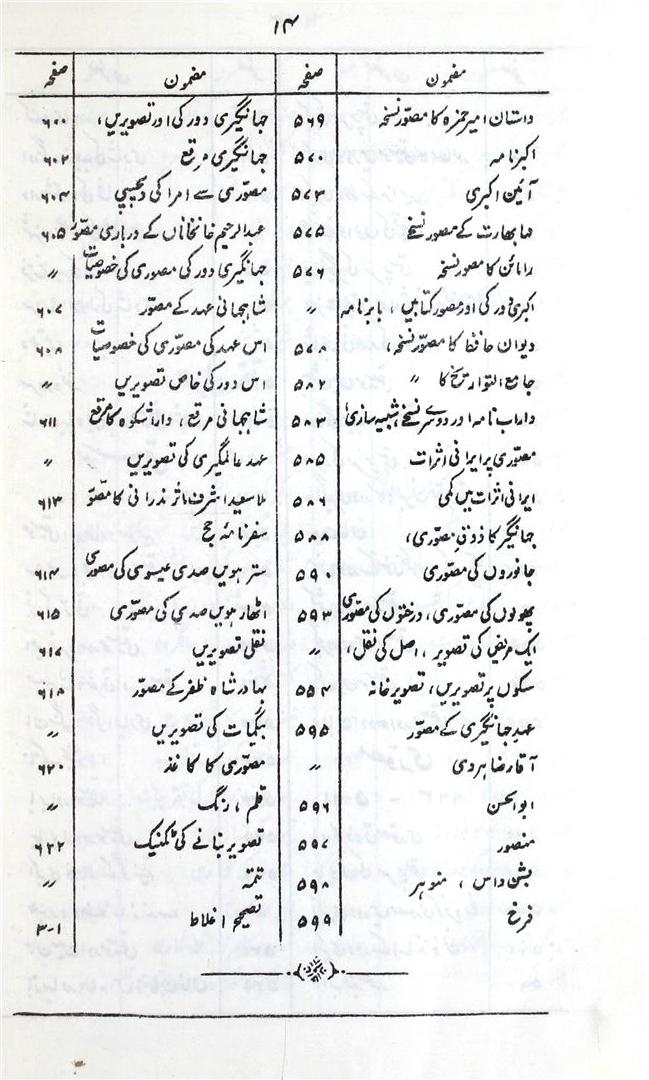 ۱۴
مضمون صفحہ
داستان امیر حمزہ کا مصوّر نسخہ ۵۶۹
اکبر نامہ ۵۷۰
آئین اکبری ۵۷۳
مہابھارت کے مصور نسخے ۵۷۵
رامائن کا مصور نسخہ ۵۷۶
اکبری دور کی اور مصور کتابیں، بابر نامہ 〃
دیوان حافظ کا مصوّر نسخہ، ۵۷۸
جامع التواریخ کا 〃 ۵۸۲
داراب نامہ اور دوسرے نسخے، شبیہ سازی ۵۸۳
مصوّری پر ایرانی اثرات ۵۸۵
ایرانی اثرات میں کمی ۵۸۶
جہانگیر کا ذوقِ مصوّری، ۵۸۸
جانوروں کی مصوّری ۵۹۰
پھولوں کی مصوری، درختوں کی مصوری ۵۹۳
ایک مریض کی تصویر، اصل کی نقل، 〃
سکوں پر تصویریں، تصویر خانہ ۵۵۴
عہدِ جہانگیری کے مصور ۵۹۵
آقا رضا ہروی 〃
ابو الحسن ۵۹۶
منصور ۵۹۷
بشن داس، منوہر ۵۹۸
فرخ ۵۹۹
مضمون صفحہ
جہانگیری دور کی اور تصویریں، ۶۰۰
جہانگیری مرقع ۶۰۲
مصوّری سے امرا کی دلچسپی ۶۰۴
عبد الرحیم خانخاناں کے درباری مصوّر ۶۰۵
جہانگیری دور کی مصوری کی خصوصیات 〃
شاہجہانی عہد کے مصوّر ۶۰۷
اس عہد کی مصوّری کی خصوصیات ۶۰۸
اس دور کی خاص تصویریں 〃
شاہجہانی مرقع، داراشکوہ کا مرقع ۶۱۱
عہد عالمگیری کی تصویریں 〃
ملا سعید اشرف ماژندرانی کا مصوّر ۶۱۳
سفرنامۂ حج
سترہویں صدی عیسوی کی مصوری ۶۱۴
اٹھارہویں صدی کی مصوّری ۶۱۵
نقلی تصویریں ۶۱۷
بہادر شاہ ظفر کے مصوّر ۶۱۸
بیگمات کی تصویریں 〃
مصوّری کا کاغذ ۶۲۰
قلم، رنگ 〃
تصویر بنانے کی ٹکنیک ۶۲۲
تتمہ 〃
تصحیح اغلاط ۱-۳